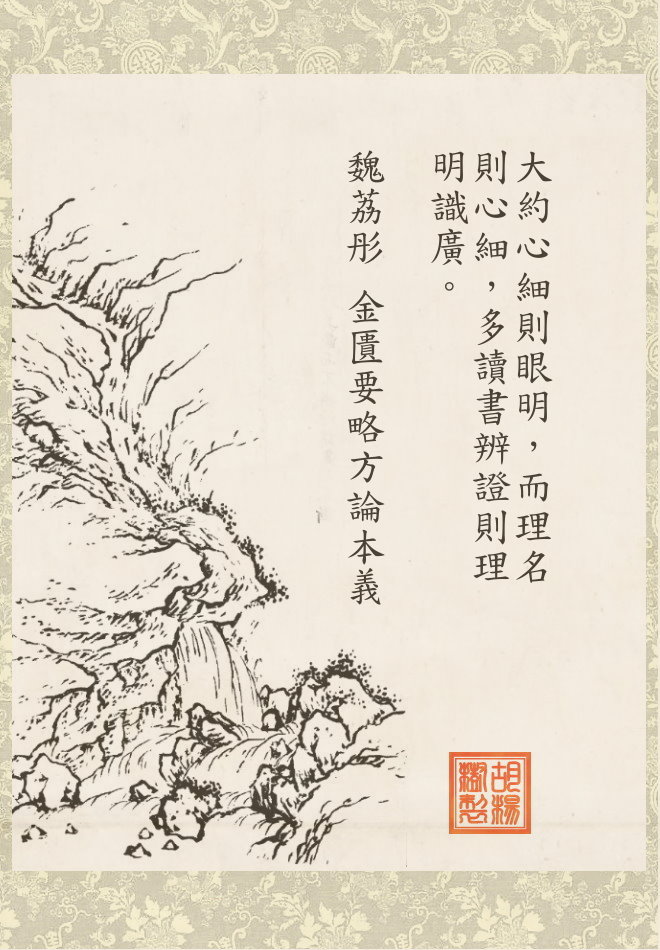 大約心細則眼明，而理名
則心細，多讀書辨證則理
明識廣。
魏荔彤 金匱要略方論本義
胡楊
樹製